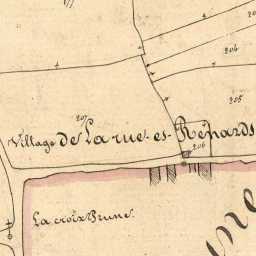 177
204
205
207
Village de La rue es Rénards
206
La croix Brune